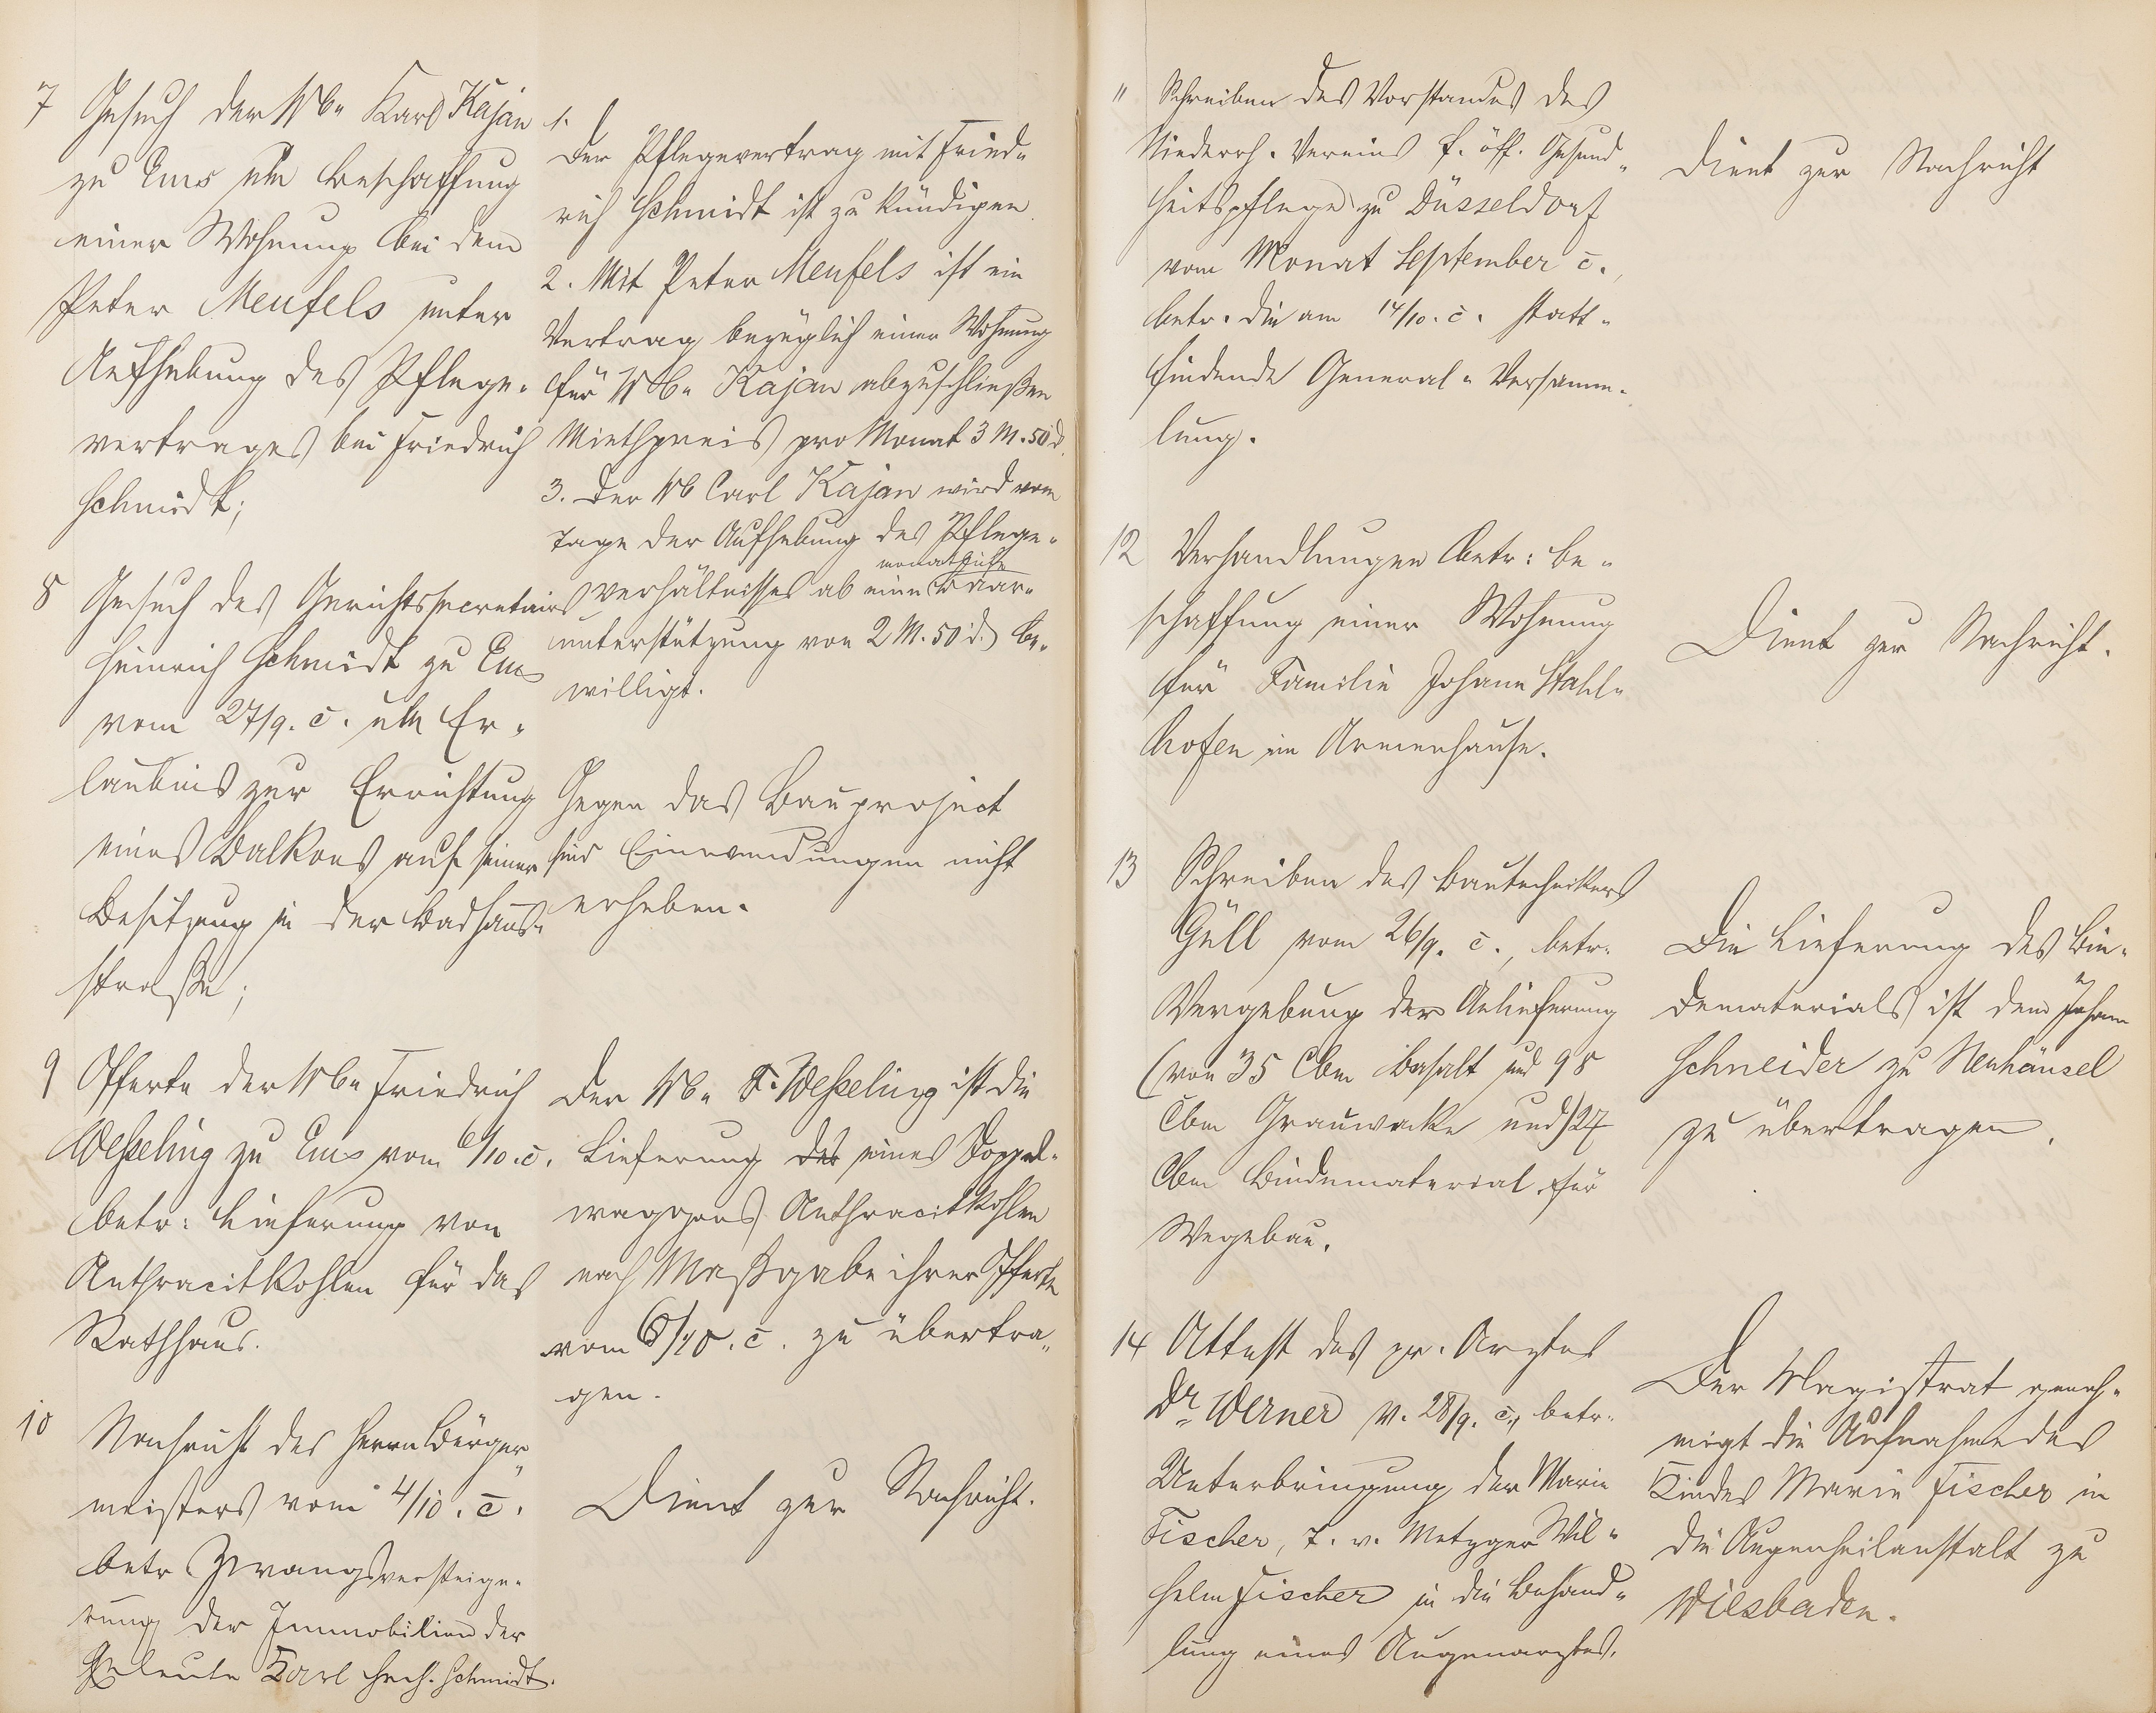 7 Gesuch der Wbe Karl Kajan
zu Ems um Beschaffung
einer Wohnung bei dem
Peter Meufels unter
Aufhebung des Pflege-
vertrages bei Friedrich
Schmidt;
1.
Der Pflegevertrag mit Fried-
rich Schmidt ist zu kündigen.
2. Mit Peter Meufels ist ein
Vertrag bezüglich einer Wohnung
für Wbe Kajan abzuschließen
Miethpreis pro Monat 3 M. 50 d.
3. Der Wb Carl Kajan wird vom
Tage der Aufhebung des Pflege-
monatliche
verhältnisses ab eine Baar-
unterstützung von 2 M. 50 d. be-
willigt.
8 Gesuch des Gerichtssecretairs
Heinrich Schmidt zu Ems
vom 27/9. c. um Er-
laubnis zur Errichtung
eines Balkons auf seiner
Besitzung in der Badhaus-
straße;
Gegen das Bauproject
sind Einwendungen nicht
erheben.
9 Offerte der Wbe Friedrich
Wesseling zu Ems vom 6/10. c.
betr: Lieferung von
Anthracitkohlen für das
Rathhaus.
Der Wbe F. Wesseling ist die
Lieferung des eines Doppel-
waggons Anthracitkohlen
nach Maßgabe ihrer Offerte
vom 6/10. c. zu übertra-
gen.
10 Nachricht des Herrn Bürger-
meisters vom 4/10. c.
betr Zwangsversteige-
rung der Immobilien der
Eheleute Karl Hch. Schmidt.
Dient zur Nachricht.
11 Schreiben des Vorstandes des
Niederrh. Vereins f. öff. Gesund-
heitspflege zu Düsseldorf
vom Monat September c.,
betr. die am 14/10. c. statt-
findende General-Versamm-
lung.
Dient zur Nachricht
12 Verhandlungen betr: Be-
schaffung einer Wohnung
für Familie Johann Stahl-
hofen im Armenhause.
Dient zur Nachricht.
13 Schreiben des Bautechnikers
Güll vom 26/9. c., betr.
Vergebung der Anlieferung
(von 35 Cbm Basalt und 98
Cbm Grauwacke und) 27
Cbm Bindematerial für
Wegebau.
Die Lieferung des Bin-
dematerials ist dem Johann
Schneider zu Neuhäusel
zu übertragen.
14 Attest des pr. Arztes
Dr Werner v. 28/9. c., betr.
Unterbringung der Marie
Fischer, T. v. Metzger Wil-
helm Fischer in die Behand-
lung eines Augenarztes.
Der Magistrat geneh-
migt die Aufnahme des
Kindes Marie Fischer in
die Augenheilanstalt zu
Wiesbaden.